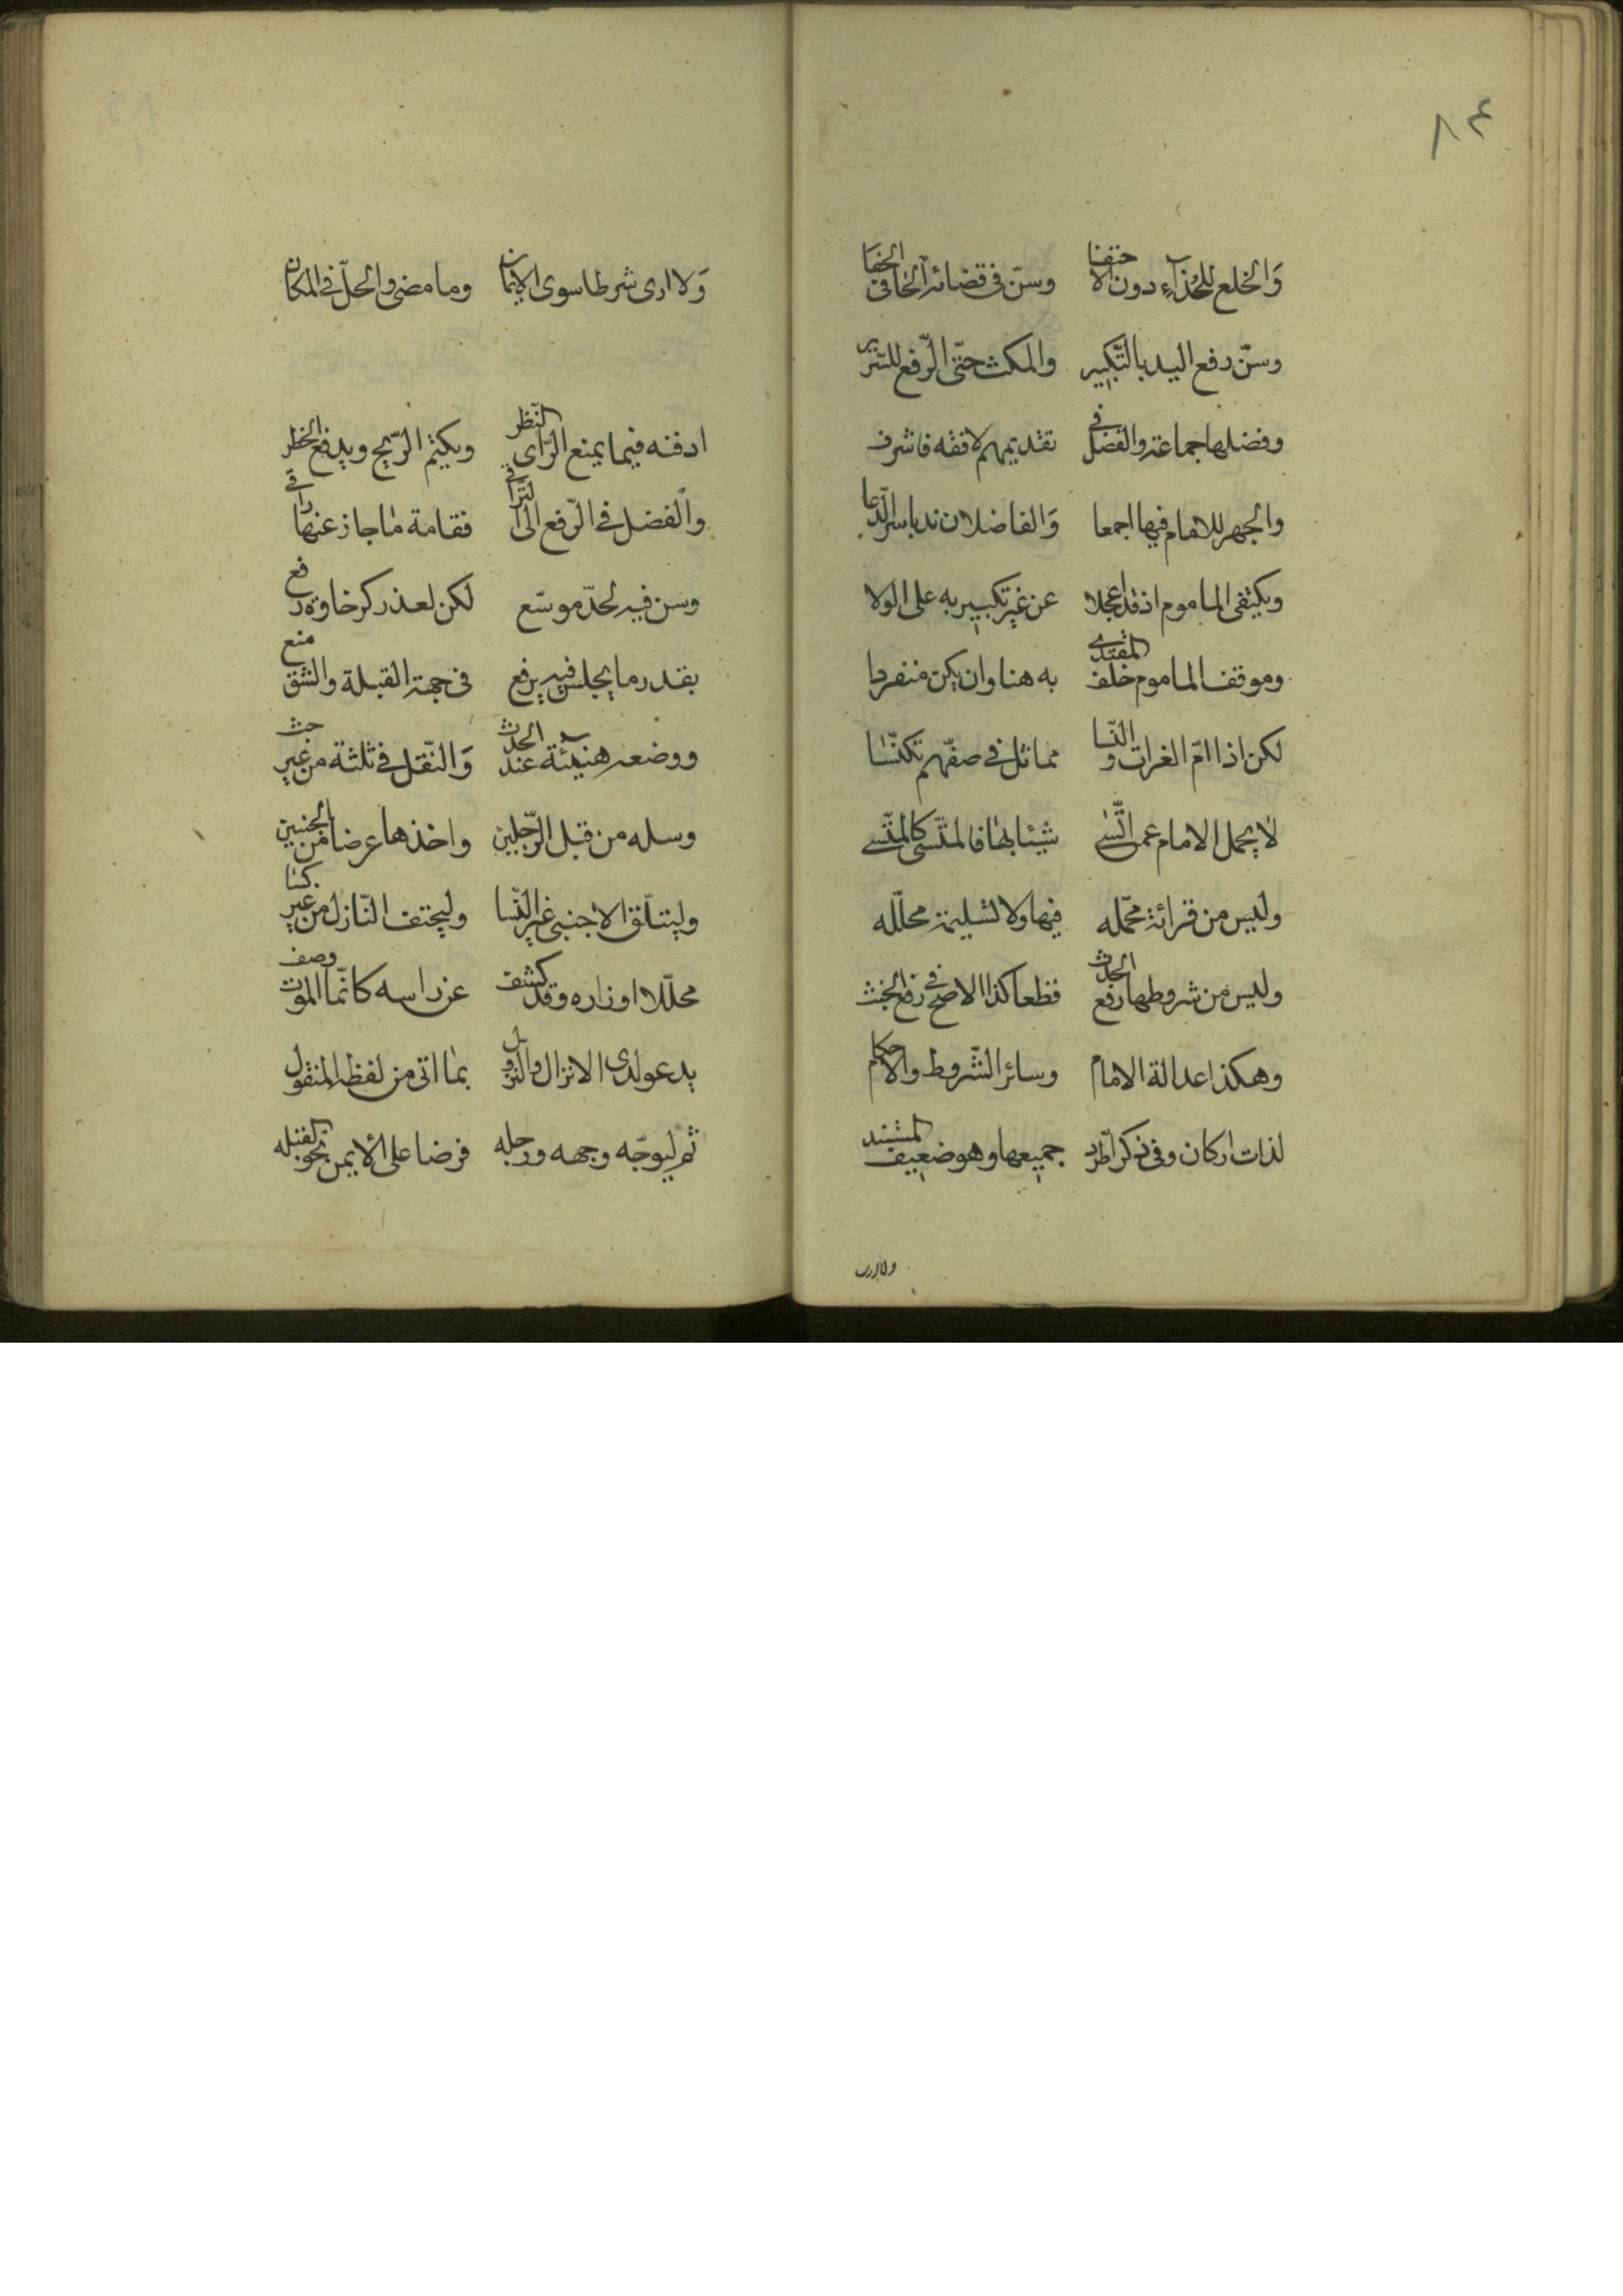 ٨٤
وَالخلع للحذآءِ دون الاختفا وسنّ فى قضائه الخافى الخفا
وسنّ رفع اليد بالتّكبير والمكث حتّى الرّفع للسّرير
وفضلها جماعة والفضل فى تقديمهم لافقه فاشرف
والجهر للامام فيها اجمعا وَالفاضلان ندبا سرّ الدّعا
ويكتفى الماموم اذ قد اعجلا عن غير تكبير به على الولا
وموقف الماموم خلف المقتدى به هنا وان يكن منفردا
لكن اذا امّ العراة والنّسا مماثل فى صفّهم تكنّسا
لا يحمل الامام عمن ائتسى شيئا بها فالمؤتسى كالمؤتسى
وليس من قرائة محمّله فيها ولا تسليمة محلّله
وليس من شروطها رفع الحدث قطعا كذا الاصح فى رفع الخبث
وهكذا عدالة الامام وسائر الشّروط والاحكام
لذات اركان وفى ذكر اطّرد جميعها وهو ضعيف المستند
ولا ارى
وَلا ارى شرطا سوى الايمان وما مضى والحلّ فى المكان
ادفنه فيما يمنع الرّاى النّظر ويكتم الرّيح ويدفع الخطر
والفضل فى الرّفع الى التّراقى فقامة ما جاز عنها راقى
وسن فيه لحد موسّع لكن لعذر كرخاوة رفع
بقدر ما يجلس فيه يرفع فى جهة القبلة والشق منع
ووضعه هنيئة عند الحدث وَالنّقل فى ثلثة من غير حث
وسله من قبل الرّجلين واخذها عرضا من الجنبين
وليتلّق الاجنبى غير النّسا وليحتف النّازل من غير كسا
محلّلا ازراره وقد كشف عن راسه كانّما الموت وصف
يدعو لدى الانزال والنّزول بما اتى من لفظه المنقول
ثم ليوجّه وجهه ورجله فرضا على الايمن نحو القبله